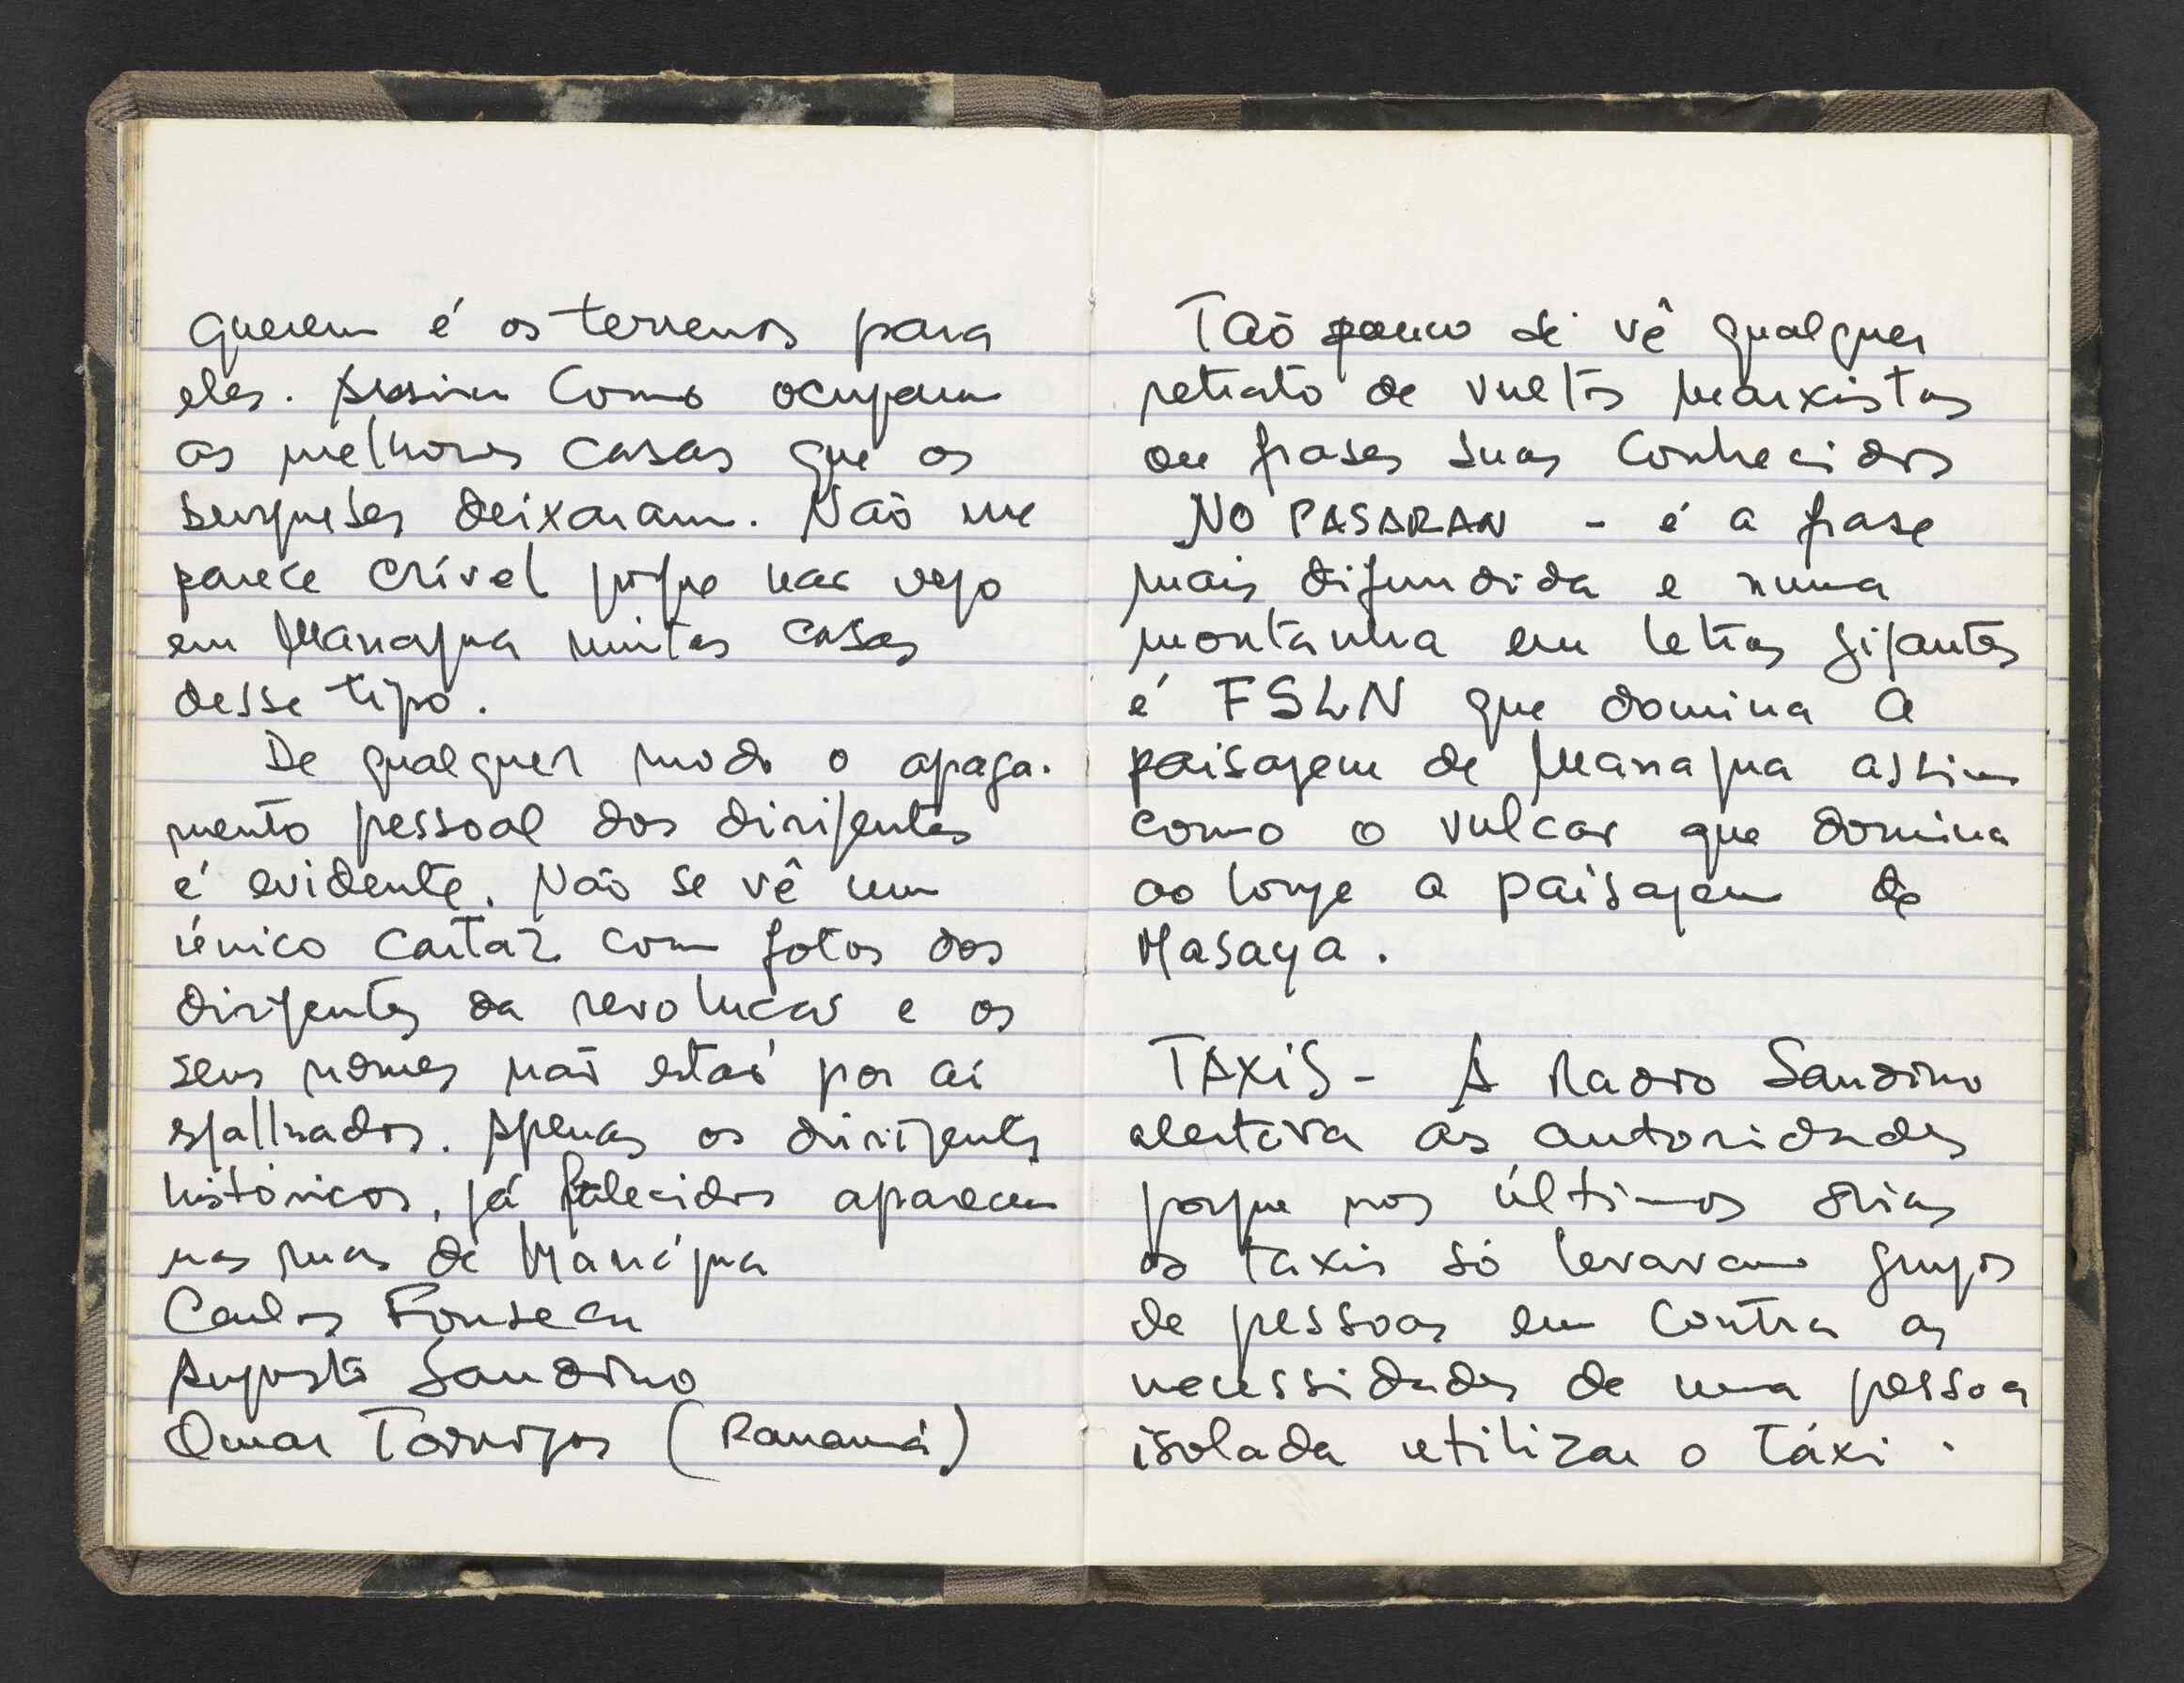 querem é os terrenos para
eles. Assim como ocupam
as melhores casas que os
burgueses deixaram. Não me
parece crível porque nao vejo
em Managua muitas casas
desse tipo.
De qualquer modo o apaga-
mento pessoal dos dirigentes
é evidente. Não se vê um
único cartaz com fotos dos
dirigentes da revolucao e os
seus nomes não estão por aí
espalhados. Apenas os dirigentes
históricos, já falecidos aparecem
nas ruas de Manágua
Carlos Fonseca
Augusto Sandino
Omar Torrijos (Panamá)
Tão pouco se vê qualquer
retrato de vultos marxistas
ou frases suas conhecidas
NO PASARAN - é a frase
mais difundida e numa
montanha em letras gigantes
é FSLN que domina a
paisagem de Managua assim
como o vulcao que domina
ao longe a paisagem de
Masaya.
TAXIS - A Radio Sandino
alertava às autoridades
porque nos últimos dias
os taxis só levavam grupos
de pessoas em contra as
necessidades de uma pessoa
isolada utilizar o táxi.